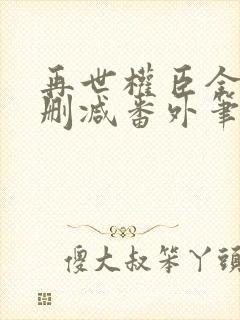 再世權臣全
刪减番外筆
傻大叔笨丫頭